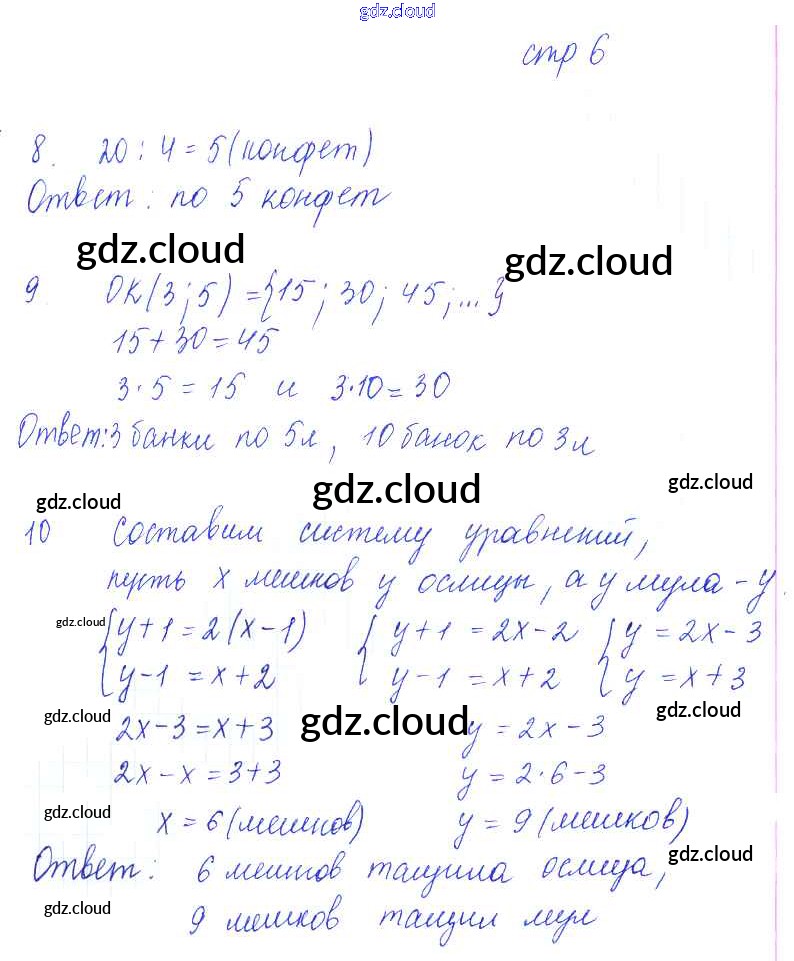 gdz.cloud
стр 6
8. 20 : 4 = 5 (конфет)
Ответ: по 5 конфет
gdz.cloud gdz.cloud
9 ОК(3; 5) = {15; 30; 45; ...}
15 + 30 = 45
3 · 5 = 15 и 3·10 = 30
Ответ: 3 банки по 5л, 10 банок по 3л
gdz.cloud gdz.cloud gdz.cloud
10 Составим систему уравнений,
пусть x мешков у ослицы, а у мула - y.
gdz.cloud { y + 1 = 2(x - 1) { y + 1 = 2x - 2 { y = 2x - 3
y - 1 = x + 2 y - 1 = x + 2 y = x + 3
gdz.cloud gdz.cloud gdz.cloud
2x - 3 = x + 3 y = 2x - 3
2x - x = 3 + 3 y = 2·6 - 3
gdz.cloud x = 6 (мешков) y = 9 (мешков)
Ответ: 6 мешков тащила ослица, gdz.cloud
gdz.cloud 9 мешков тащил мул